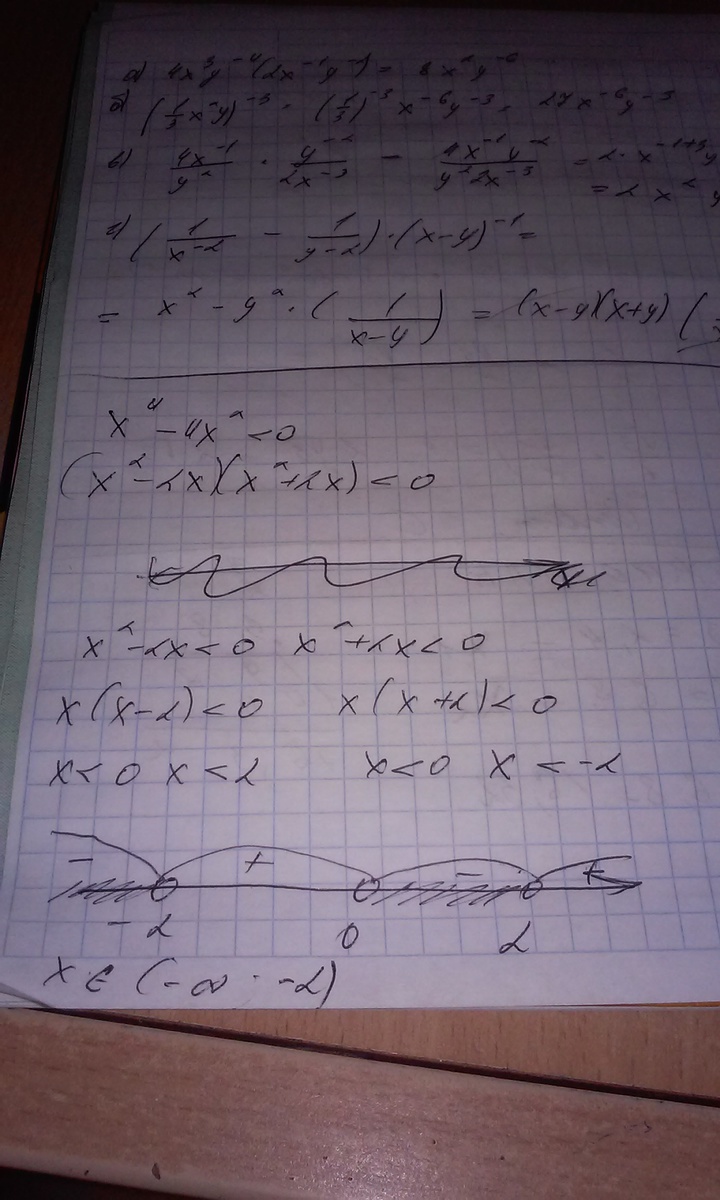 а) 4x³y⁻⁴(2x⁻¹y⁻²) = 8x²y⁻⁶
б) (1/3 x²y)⁻³ = (1/3)⁻³ x⁻⁶y⁻³ = 27x⁻⁶y⁻³
в) 4x⁻¹/y² · y⁻²/2x⁻³ - 4x⁻¹y⁻²/y²2x⁻³ = 2·x⁻¹⁺³y
= 2x²y
г) (1/x⁻² - 1/y⁻²)·(x-y)⁻¹ =
= x² - y²·(1/x-y) = (x-y)(x+y)(
x⁴ - 4x² < 0
(x² - 2x)(x² + 2x) < 0
x² - 2x < 0 x² + 2x < 0
x(x-2) < 0 x(x+2) < 0
x < 0 x < 2 x < 0 x < -2
- + - +
-2 0 2
x ∈ (-∞; -2)